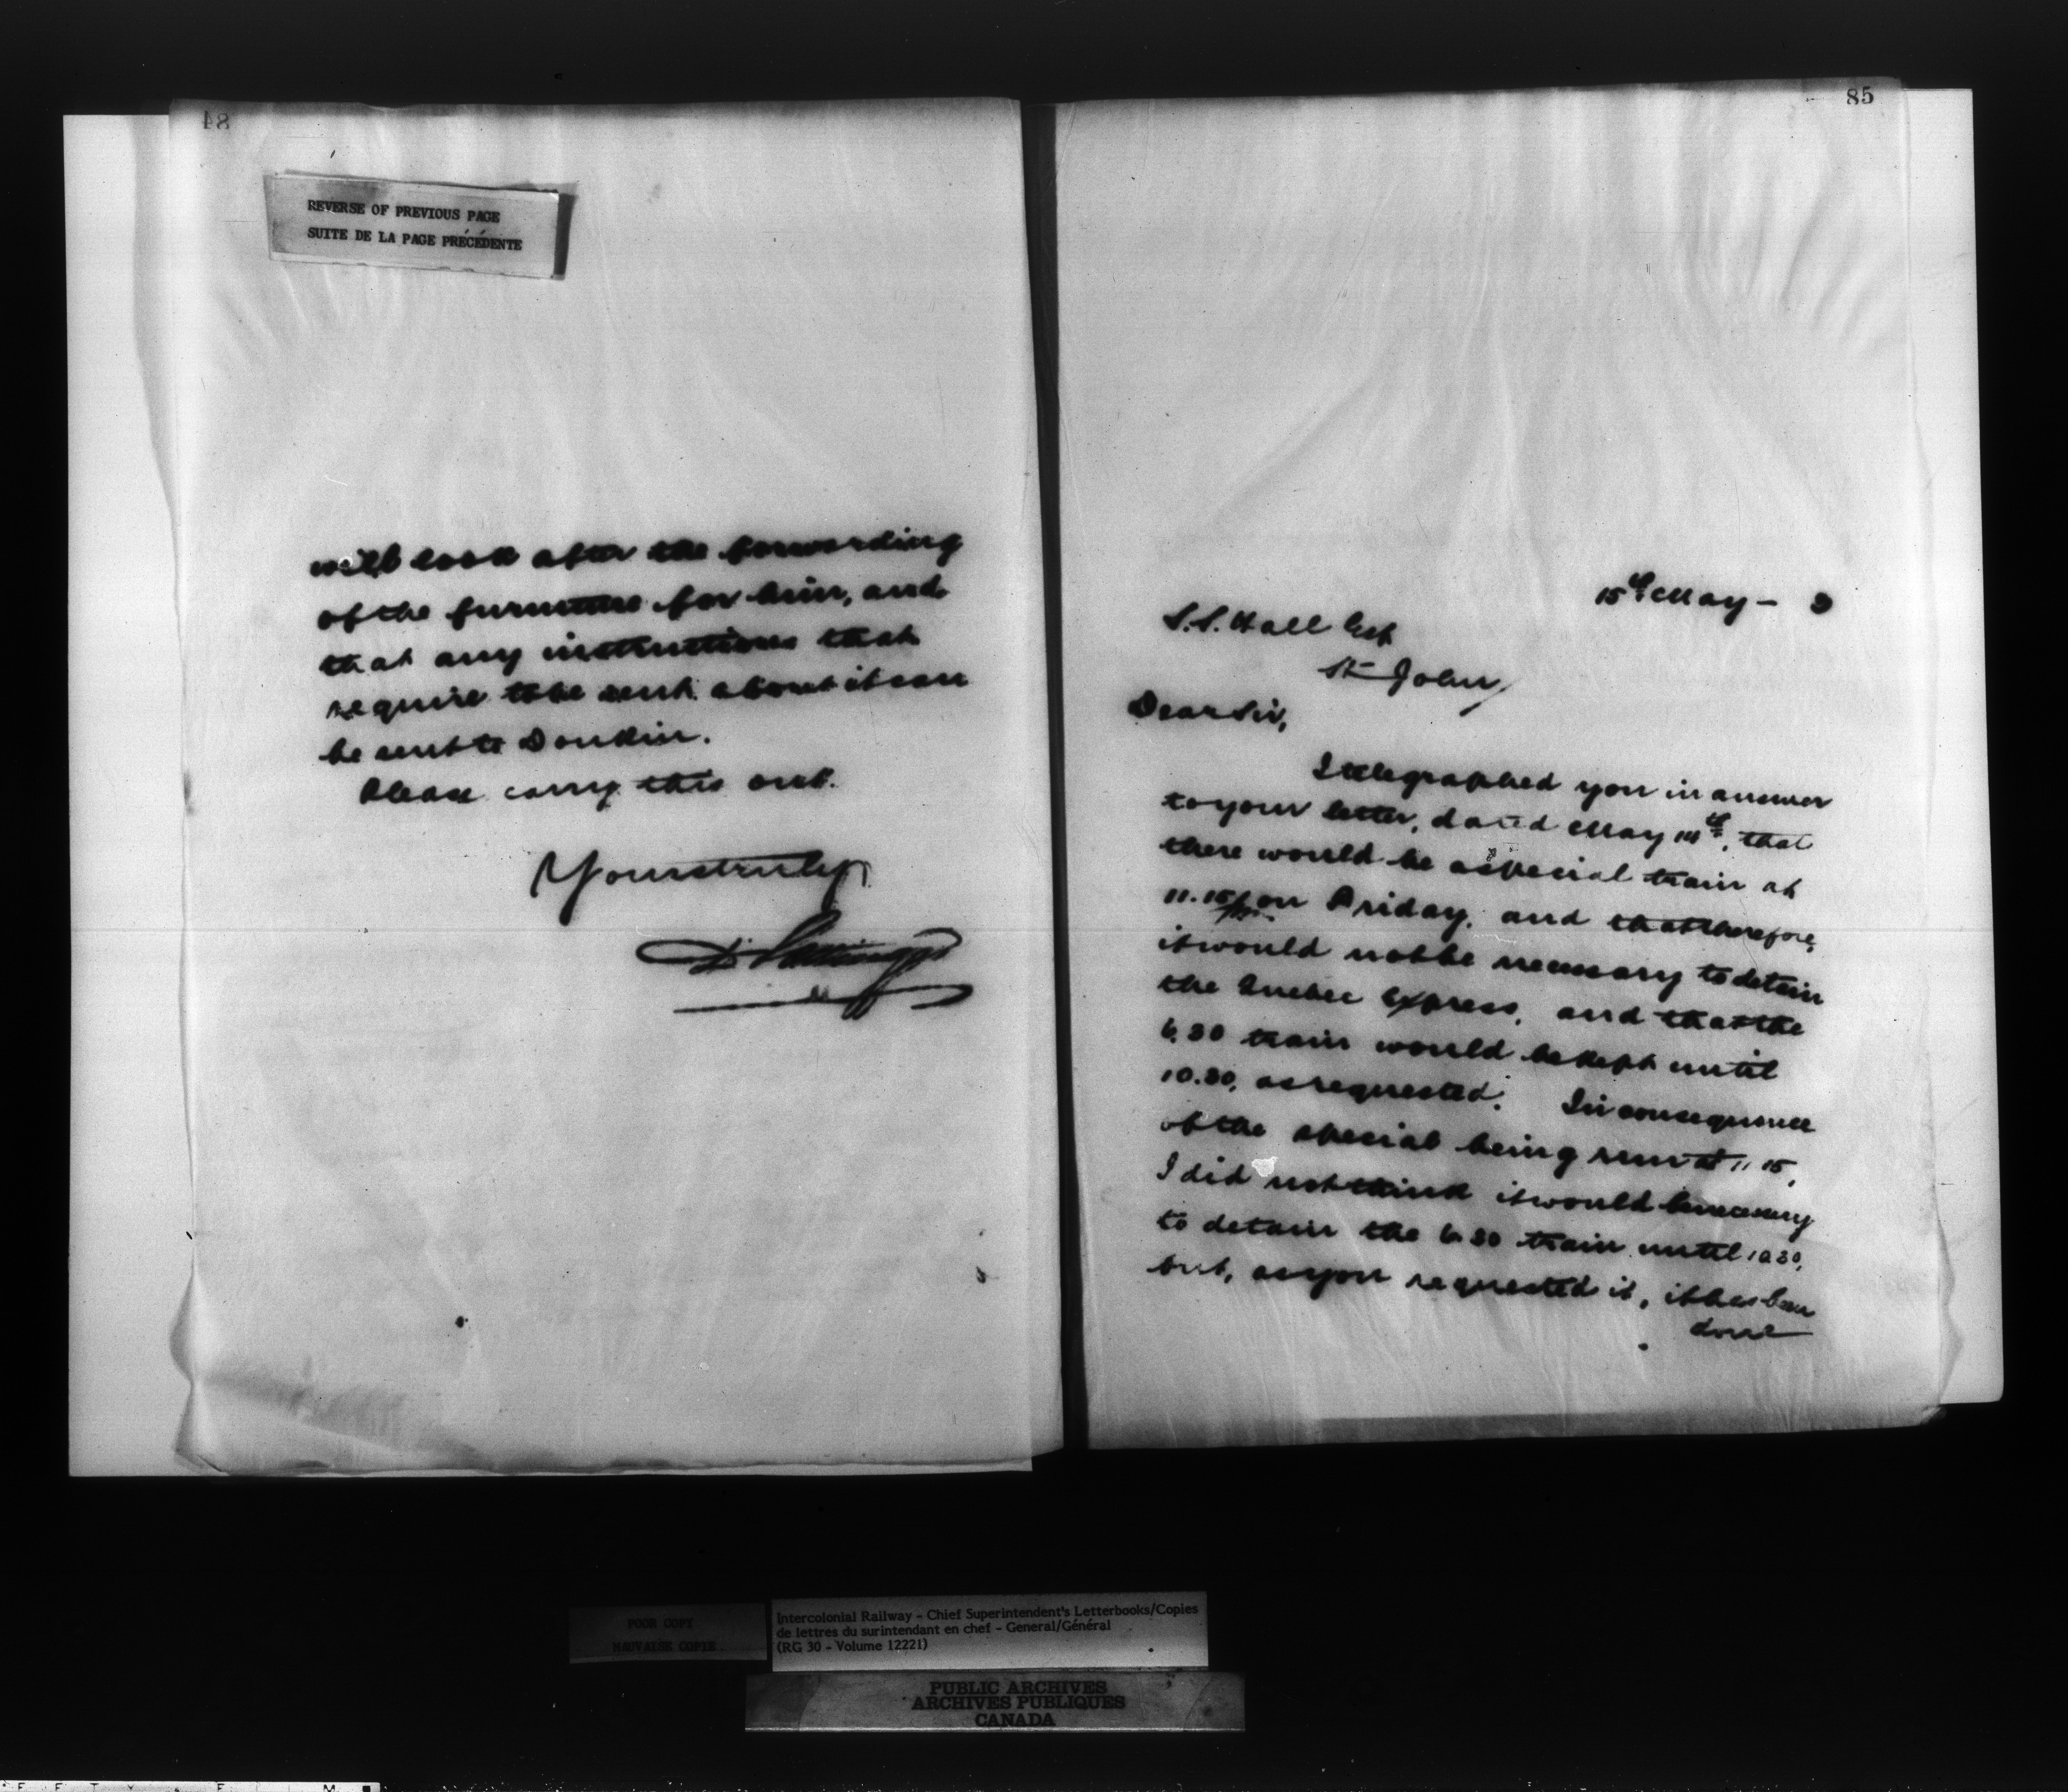 84
REVERSE OF PREVIOUS PAGE
SUITE DE LA PAGE PRÉCÉDENTE
will look after the forwarding
of the furniture for him, and
that any instructions that
require to be sent about it can
be sent to Donkin.
Please carry this out.
Yours truly
D. Pottinger
85
15th May - 
S.S. Hall Esq
St John,
Dear Sir,
I telegraphed you in answer
to your letter, dated May 14th, that
there would be a special train at
11.15 on Friday, and that therefore,
it would not be necessary to detain
the Quebec Express, and that the
6.30 train would be kept until
10.30, as requested. In consequence
of the special being run at 11 15,
I did not think it would be necessary
to detain the 6 30 train until 10 30,
but, as you requested it, it has been
done
POOR COPY
MAUVAISE COPIE
Intercolonial Railway - Chief Superintendent's Letterbooks/Copies
de lettres du surintendant en chef - General/Général
(RG 30 - Volume 12221)
PUBLIC ARCHIVES
ARCHIVES PUBLIQUES
CANADA